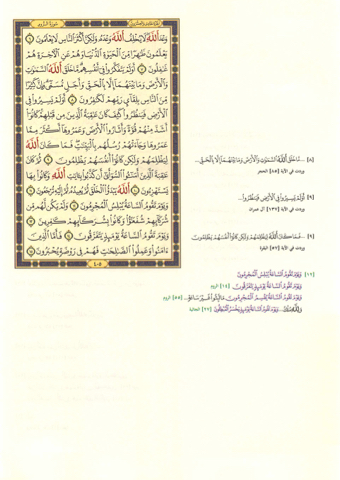 سورة الروم
وَعْدَ اللَّهِ لَا يُخْلِفُ اللَّهُ وَعْدَهُ وَلَكِنَّ أَكْثَرَ النَّاسِ لَا يَعْلَمُونَ ٦
يَعْلَمُونَ ظَاهِرًا مِنَ الْحَيَاةِ الدُّنْيَا وَهُمْ عَنِ الْآخِرَةِ هُمْ
غَافِلُونَ ٧ أَوَلَمْ يَتَفَكَّرُوا فِي أَنْفُسِهِمْ مَا خَلَقَ اللَّهُ السَّمَاوَاتِ
وَالْأَرْضَ وَمَا بَيْنَهُمَا إِلَّا بِالْحَقِّ وَأَجَلٍ مُسَمًّى وَإِنَّ كَثِيرًا
مِنَ النَّاسِ بِلِقَاءِ رَبِّهِمْ لَكَافِرُونَ ٨ أَوَلَمْ يَسِيرُوا فِي
الْأَرْضِ فَيَنْظُرُوا كَيْفَ كَانَ عَاقِبَةُ الَّذِينَ مِنْ قَبْلِهِمْ كَانُوا
أَشَدَّ مِنْهُمْ قُوَّةً وَأَثَارُوا الْأَرْضَ وَعَمَرُوهَا أَكْثَرَ مِمَّا
عَمَرُوهَا وَجَاءَتْهُمْ رُسُلُهُمْ بِالْبَيِّنَاتِ فَمَا كَانَ اللَّهُ
لِيَظْلِمَهُمْ وَلَكِنْ كَانُوا أَنْفُسَهُمْ يَظْلِمُونَ ٩ ثُمَّ كَانَ
عَاقِبَةَ الَّذِينَ أَسَاءُوا السُّوأَى أَنْ كَذَّبُوا بِآيَاتِ اللَّهِ وَكَانُوا بِهَا
يَسْتَهْزِئُونَ ١٠ اللَّهُ يَبْدَأُ الْخَلْقَ ثُمَّ يُعِيدُهُ ثُمَّ إِلَيْهِ تُرْجَعُونَ ١١
وَيَوْمَ تَقُومُ السَّاعَةُ يُبْلِسُ الْمُجْرِمُونَ ١٢ وَلَمْ يَكُنْ لَهُمْ مِنْ
شُرَكَائِهِمْ شُفَعَاءُ وَكَانُوا بِشُرَكَائِهِمْ كَافِرِينَ ١٣
وَيَوْمَ تَقُومُ السَّاعَةُ يَوْمَئِذٍ يَتَفَرَّقُونَ ١٤ فَأَمَّا الَّذِينَ
آمَنُوا وَعَمِلُوا الصَّالِحَاتِ فَهُمْ فِي رَوْضَةٍ يُحْبَرُونَ ١٥
٤٠٥
[٨] ...مَا خَلَقَ اللَّهُ السَّمَاوَاتِ وَالْأَرْضَ وَمَا بَيْنَهُمَا إِلَّا بِالْحَقِّ...
وردت في الآية [٨٥] الحجر
[٩] أَوَلَمْ يَسِيرُوا فِي الْأَرْضِ فَيَنْظُرُوا...
وردت في الآية [١٣٧] آل عمران
[٩] ...فَمَا كَانَ اللَّهُ لِيَظْلِمَهُمْ وَلَكِنْ كَانُوا أَنْفُسَهُمْ يَظْلِمُونَ
وردت في الآية [٥٧] البقرة
[١٢] وَيَوْمَ تَقُومُ السَّاعَةُ يُبْلِسُ الْمُجْرِمُونَ
وَيَوْمَ تَقُومُ السَّاعَةُ يَوْمَئِذٍ يَتَفَرَّقُونَ [١٤] الروم
وَيَوْمَ تَقُومُ السَّاعَةُ يُقْسِمُ الْمُجْرِمُونَ مَا لَبِثُوا غَيْرَ سَاعَةٍ... [٥٥] الروم
وَلِلَّهِ مُلْكُ... وَيَوْمَ تَقُومُ السَّاعَةُ يَوْمَئِذٍ يَخْسَرُ الْمُبْطِلُونَ [٢٧] الجاثية